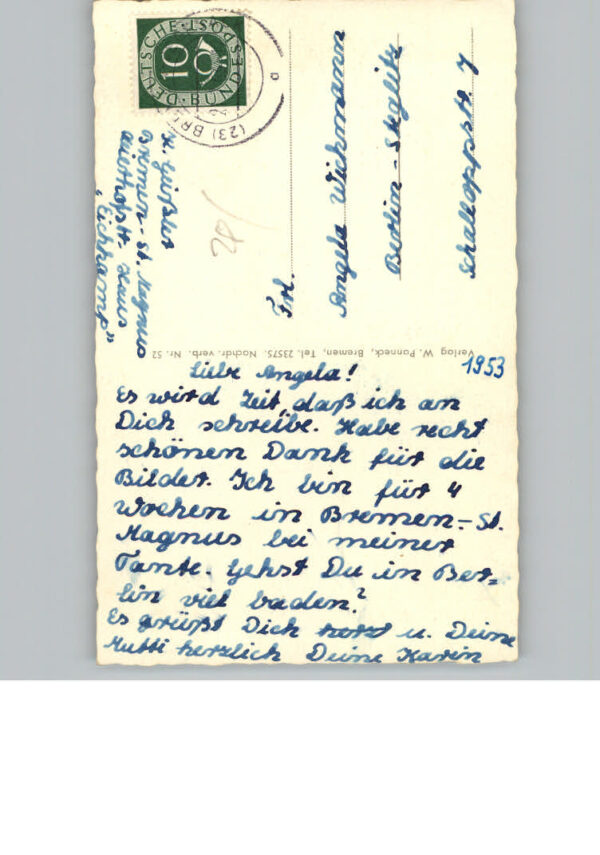 DEUTSCHE BUNDESPOST
10
(23) BRE
a
K.
Bremen-St. Magnus
Haus
"Eichkamp"
28/
Frl.
Angela Wichmann
Berlin-Steglitz
Schalloppstr. 7
Verlag W. Panneck, Bremen, Tel. 23575. Nachdr. verb. Nr. 52
1953
Liebe Angela!
Es wird Zeit, daß ich an
Dich schreibe. Habe recht
schönen Dank für die
Bilder. Ich bin für 4
Wochen in Bremen-St.
Magnus bei meiner
Tante. Gehst Du in Ber=
lin viel baden?
Es grüßt Dich u. Deine
Mutti herzlich Deine Karin